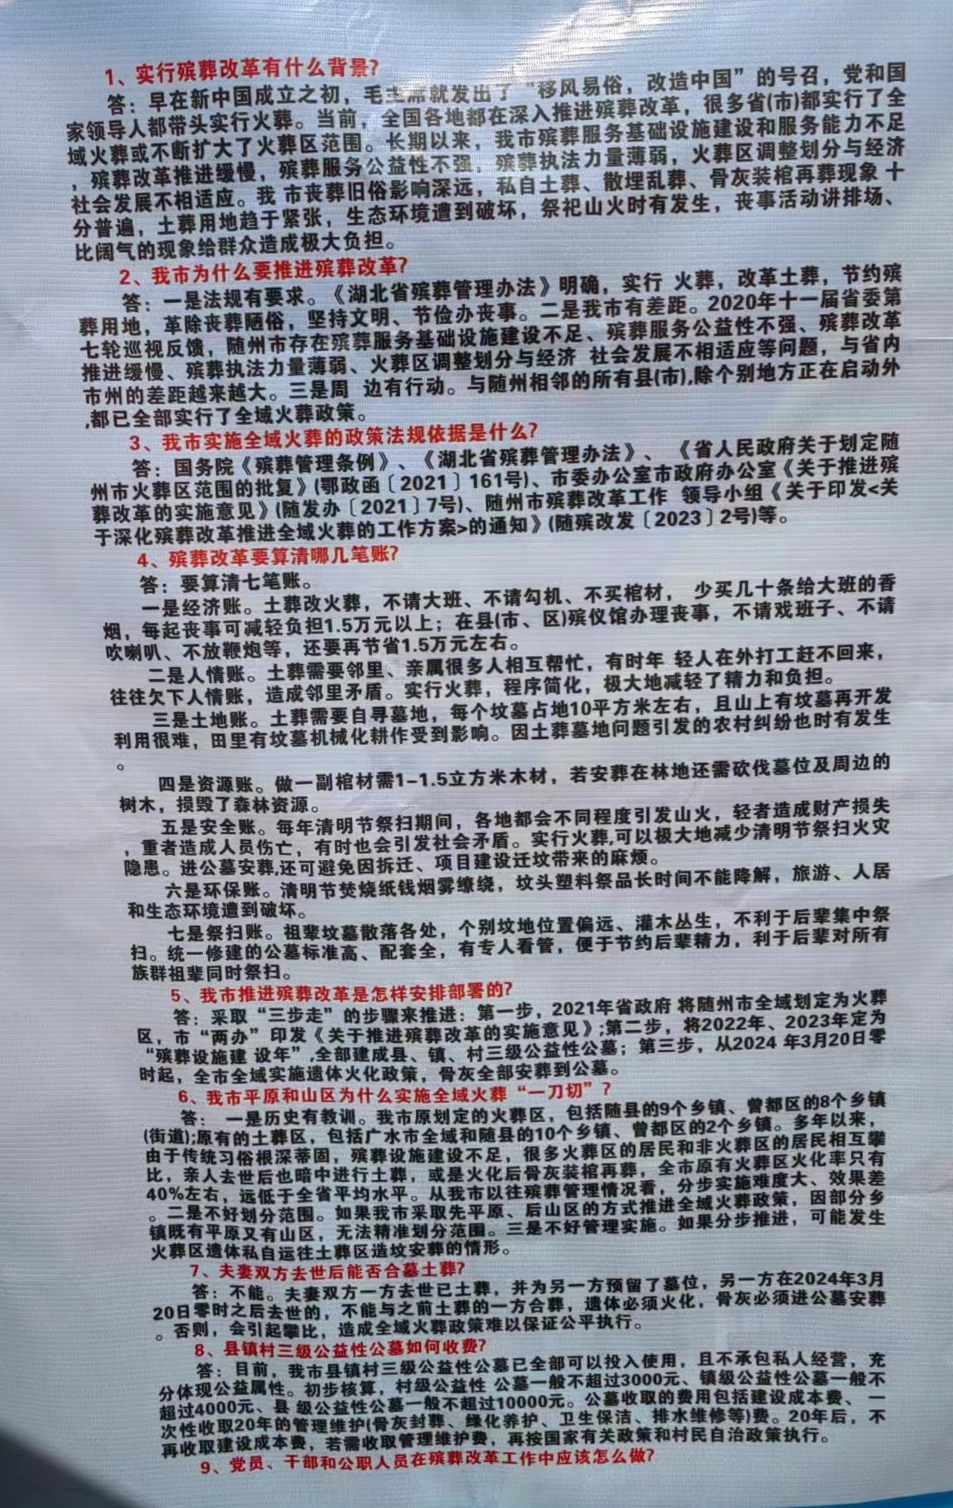 1、实行殡葬改革有什么背景?
答：早在新中国成立之初，毛主席就发出了“移风易俗，改造中国”的号召，党和国
家领导人都带头实行火葬。当前，全国各地都在深入推进殡葬改革，很多省(市)都实行了全
域火葬或不断扩大了火葬区范围。长期以来，我市殡葬服务基础设施建设和服务能力不足
，殡葬改革推进缓慢，殡葬服务公益性不强，殡葬执法力量薄弱，火葬区调整划分与经济
社会发展不相适应。我 市丧葬旧俗影响深远，私自土葬、散埋乱葬、骨灰装棺再葬现象 十
分普遍，土葬用地趋于紧张，生态环境遭到破坏，祭祀山火时有发生，丧事活动讲排场、
比阔气的现象给群众造成极大负担。
2、我市为什么要推进殡葬改革?
答：一是法规有要求。《湖北省殡葬管理办法》明确，实行 火葬，改革土葬，节约殡
葬用地，革除丧葬陋俗，坚持文明、节俭办丧事。二是我市有差距。2020年十一届省委第
七轮巡视反馈，随州市存在殡葬服务基础设施建设不足、殡葬服务公益性不强、殡葬改革
推进缓慢、殡葬执法力量薄弱、火葬区调整划分与经济 社会发展不相适应等问题，与省内
市州的差距越来越大。三是周 边有行动。与随州相邻的所有县(市),除个别地方正在启动外
,都已全部实行了全域火葬政策。
3、我市实施全域火葬的政策法规依据是什么?
答：国务院《殡葬管理条例》、《湖北省殡葬管理办法》、 《省人民政府关于划定随
州市火葬区范围的批复》(鄂政函〔2021〕161号)、市委办公室市政府办公室《关于推进殡
葬改革的实施意见》(随发办〔2021〕7号)、随州市殡葬改革工作 领导小组《关于印发<关
于深化殡葬改革推进全域火葬的工作方案>的通知》(随殡改发〔2023〕2号)等。
4、殡葬改革要算清哪几笔账?
答：要算清七笔账。
一是经济账。土葬改火葬，不请大班、不请勾机、不买棺材， 少买几十条给大班的香
烟，每起丧事可减轻负担1.5万元以上；在县(市、区)殡仪馆办理丧事，不请戏班子、不请
吹喇叭、不放鞭炮等，还要再节省1.5万元左右。
二是人情账。土葬需要邻里、亲属很多人相互帮忙，有时年 轻人在外打工赶不回来，
往往欠下人情账，造成邻里矛盾。实行火葬，程序简化，极大地减轻了精力和负担。
三是土地账。土葬需要自寻墓地，每个坟墓占地10平方米左右，且山上有坟墓再开发
利用很难，田里有坟墓机械化耕作受到影响。因土葬墓地问题引发的农村纠纷也时有发生
。
四是资源账。做一副棺材需1-1.5立方米木材，若安葬在林地还需砍伐墓位及周边的
树木，损毁了森林资源。
五是安全账。每年清明节祭扫期间，各地都会不同程度引发山火，轻者造成财产损失
，重者造成人员伤亡，有时也会引发社会矛盾。实行火葬,可以极大地减少清明节祭扫火灾
隐患。进公墓安葬,还可避免因拆迁、项目建设迁坟带来的麻烦。
六是环保账。清明节焚烧纸钱烟雾缭绕，坟头塑料祭品长时间不能降解，旅游、人居
和生态环境遭到破坏。
七是祭扫账。祖辈坟墓散落各处，个别坟地位置偏远、灌木丛生，不利于后辈集中祭
扫。统一修建的公墓标准高、配套全，有专人看管，便于节约后辈精力，利于后辈对所有
族群祖辈同时祭扫。
5、我市推进殡葬改革是怎样安排部署的?
答：采取“三步走”的步骤来推进：第一步，2021年省政府 将随州市全域划定为火葬
区，市“两办”印发《关于推进殡葬改革的实施意见》;第二步，将2022年、2023年定为
“殡葬设施建 设年”,全部建成县、镇、村三级公益性公墓；第三步，从2024 年3月20日零
时起，全市全域实施遗体火化政策，骨灰全部安葬到公墓。
6、我市平原和山区为什么实施全域火葬“一刀切”?
答： 一是历史有教训。我市原划定的火葬区，包括随县的9个乡镇、曾都区的8个乡镇
(街道);原有的土葬区，包括广水市全域和随县的10个乡镇、曾都区的2个乡镇。多年以来，
由于传统习俗根深蒂固，殡葬设施建设不足，很多火葬区的居民和非火葬区的居民相互攀
比，亲人去世后也暗中进行土葬，或是火化后骨灰装棺再葬，全市原有火葬区火化率只有
40%左右，远低于全省平均水平。从我市以往殡葬管理情况看，分步实施难度大、效果差
。二是不好划分范围。如果我市采取先平原、后山区的方式推进全域火葬政策，因部分乡
镇既有平原又有山区，无法精准划分范围。三是不好管理实施。如果分步推进，可能发生
火葬区遗体私自运往土葬区造坟安葬的情形。
7、夫妻双方去世后能否合墓土葬?
答：不能。夫妻双方一方去世已土葬，并为另一方预留了墓位，另一方在2024年3月
20日零时之后去世的，不能与之前土葬的一方合葬，遗体必须火化，骨灰必须进公墓安葬
。否则，会引起攀比，造成全域火葬政策难以保证公平执行。
8、县镇村三级公益性公墓如何收费?
答：目前，我市县镇村三级公益性公墓已全部可以投入使用，且不承包私人经营，充
分体现公益属性。初步核算，村级公益性 公墓一般不超过3000元、镇级公益性公墓一般不
超过4000元、县 级公益性公墓一般不超过10000元。公墓收取的费用包括建设成本费、一
次性收取20年的管理维护(骨灰封葬、绿化养护、卫生保洁、排水维修等)费。20年后，不
再收取建设成本费，若需收取管理维护费，再按国家有关政策和村民自治政策执行。
9、党员、干部和公职人员在殡葬改革工作中应该怎么做?